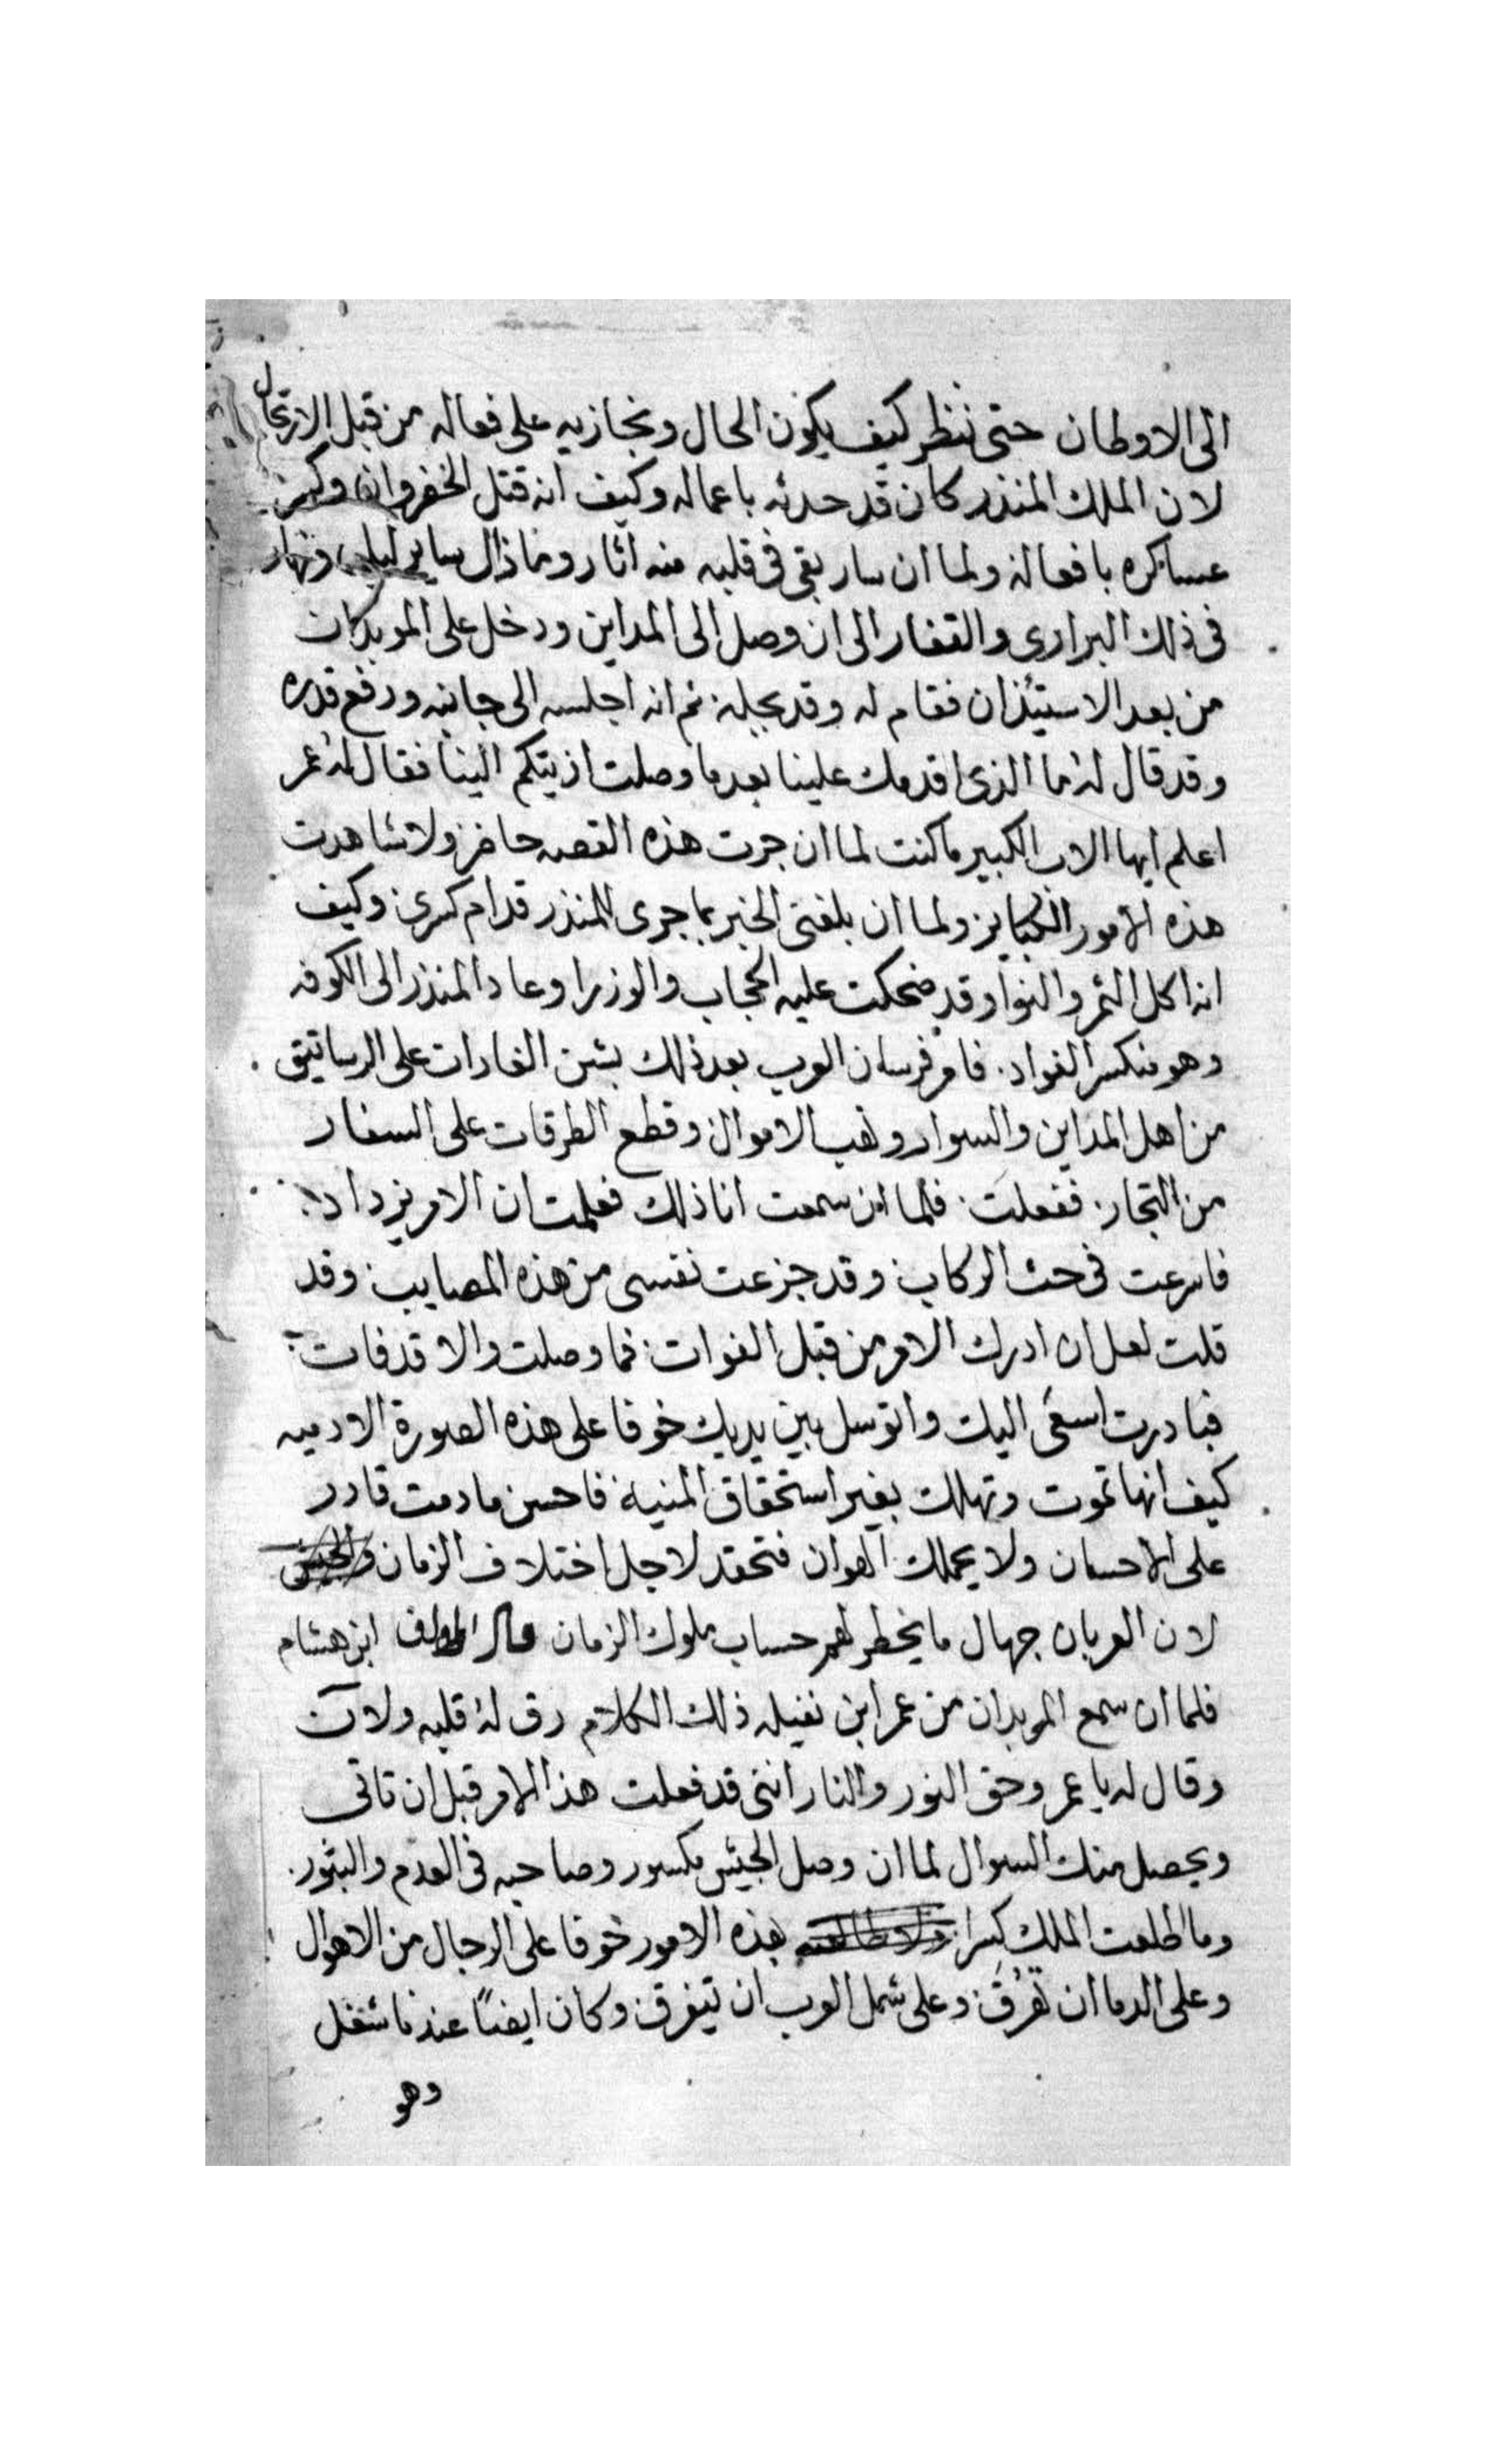 الى الاوطان حتى ننظر كيف يكون الحال ونجازيه على فعاله من قبل الارتحال
لان الملك المنذر كان قد حدثه باعماله وكيف انه قتل الخفروان وكسر
عساكره بافعاله ولما ان سار بقى فى قلبه منه اثار وما زال ساير ليلى ونهار
فى ذلك البرارى والقفار الى ان وصل الى المداين ودخل على الموبدان
من بعد الاستيذان فقام له وقد بجله ثم انه اجلسه الى جانبه ورفع قدره
وقد قال له ما الذى اقدمك علينا بعد ما وصلت اذيتكم الينا فقال له عمر
اعلم ايها الاب الكبير ما كنت لما ان جرت هذه القصه حاضر ولا شاهدت
هذه الامور الكباير ولما ان بلغنى الخبر بما جرى للمنذر قدام كسرى وكيف
انه اكل التمر والنوا وقد ضحكت عليه الحجاب والوزرا وعاد المنذر الى الكوفه
وهو منكسر الفواد. فامر فرسان العرب بعد ذلك بشن الغارات على الرساتيق
من اهل المداين والسواد ونهب الاموال وقطع الطرقات على السفار
من التجار. ففعلت. فلما ان سمعت انا ذلك فعلمت ان الامر يزداد
فاسرعت فى حث الركاب وقد جزعت نفسى من هذه المصايب وقد
قلت لعل ان ادرك الامر من قبل الفوات فما وصلت والا قد فات
فبادرت اسعى اليك واتوسل بين يديك خوفا على هذه الصورة الادميه
كيف انها تموت وتهلك بغير استحقاق المنيه فاحسن ما دمت قادر
على الاحسان ولا يحملك الهوان فتحقد لاجل اختلاف الزمان
لان العربان جهال ما يخطر لهم حساب ملوك الزمان قال المولف ابن هشام
فلما ان سمع الموبدان من عمر ابن نفيله ذلك الكلام رق له قلبه ولان
وقال له يا عمر وحق النور والنار اننى قد فعلت هذا الامر قبل ان تاتى
ويحصل منك السوال لما ان وصل الجيش مكسور وصاحبه فى العدم والبثور.
وما اطلعت الملك كسرا بهذه الامور خوفا على الرجال من الاهوال
وعلى الدما ان تهرق وعلى شمل العرب ان يتفرق وكان ايضًا عندنا شغل
وهو